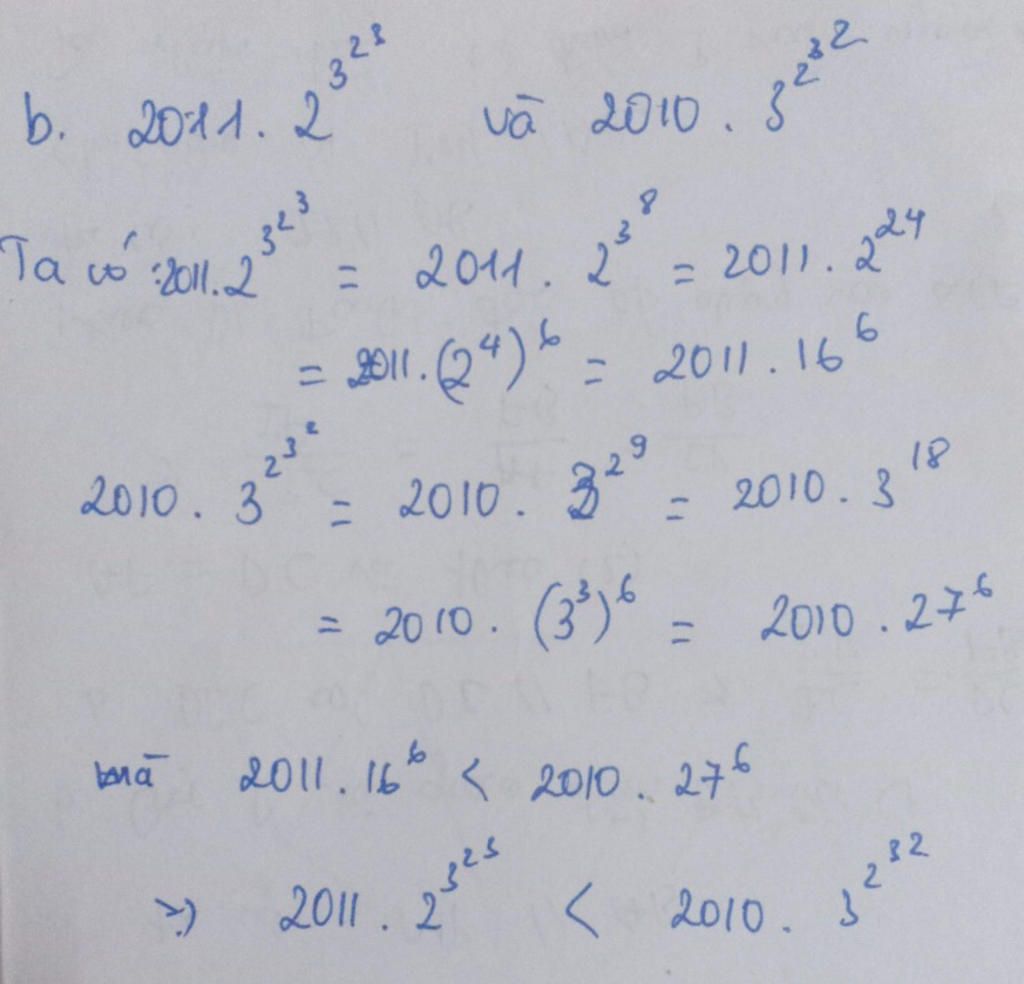 b. 2011 . 2^{3^{2^3}} và 2010 . 3^{2^{3^2}}
Ta có : 2011. 2^{3^{2^3}} = 2011 . 2^{3^8} = 2011 . 2^{24}
= 2011. (2^4)^6 = 2011 . 16^6
2010 . 3^{2^{3^2}} = 2010 . 3^{2^9} = 2010 . 3^{18}
= 2010 . (3^3)^6 = 2010 . 27^6
mà 2011 . 16^6 < 2010 . 27^6
=> 2011 . 2^{3^{2^3}} < 2010 . 3^{2^{3^2}}